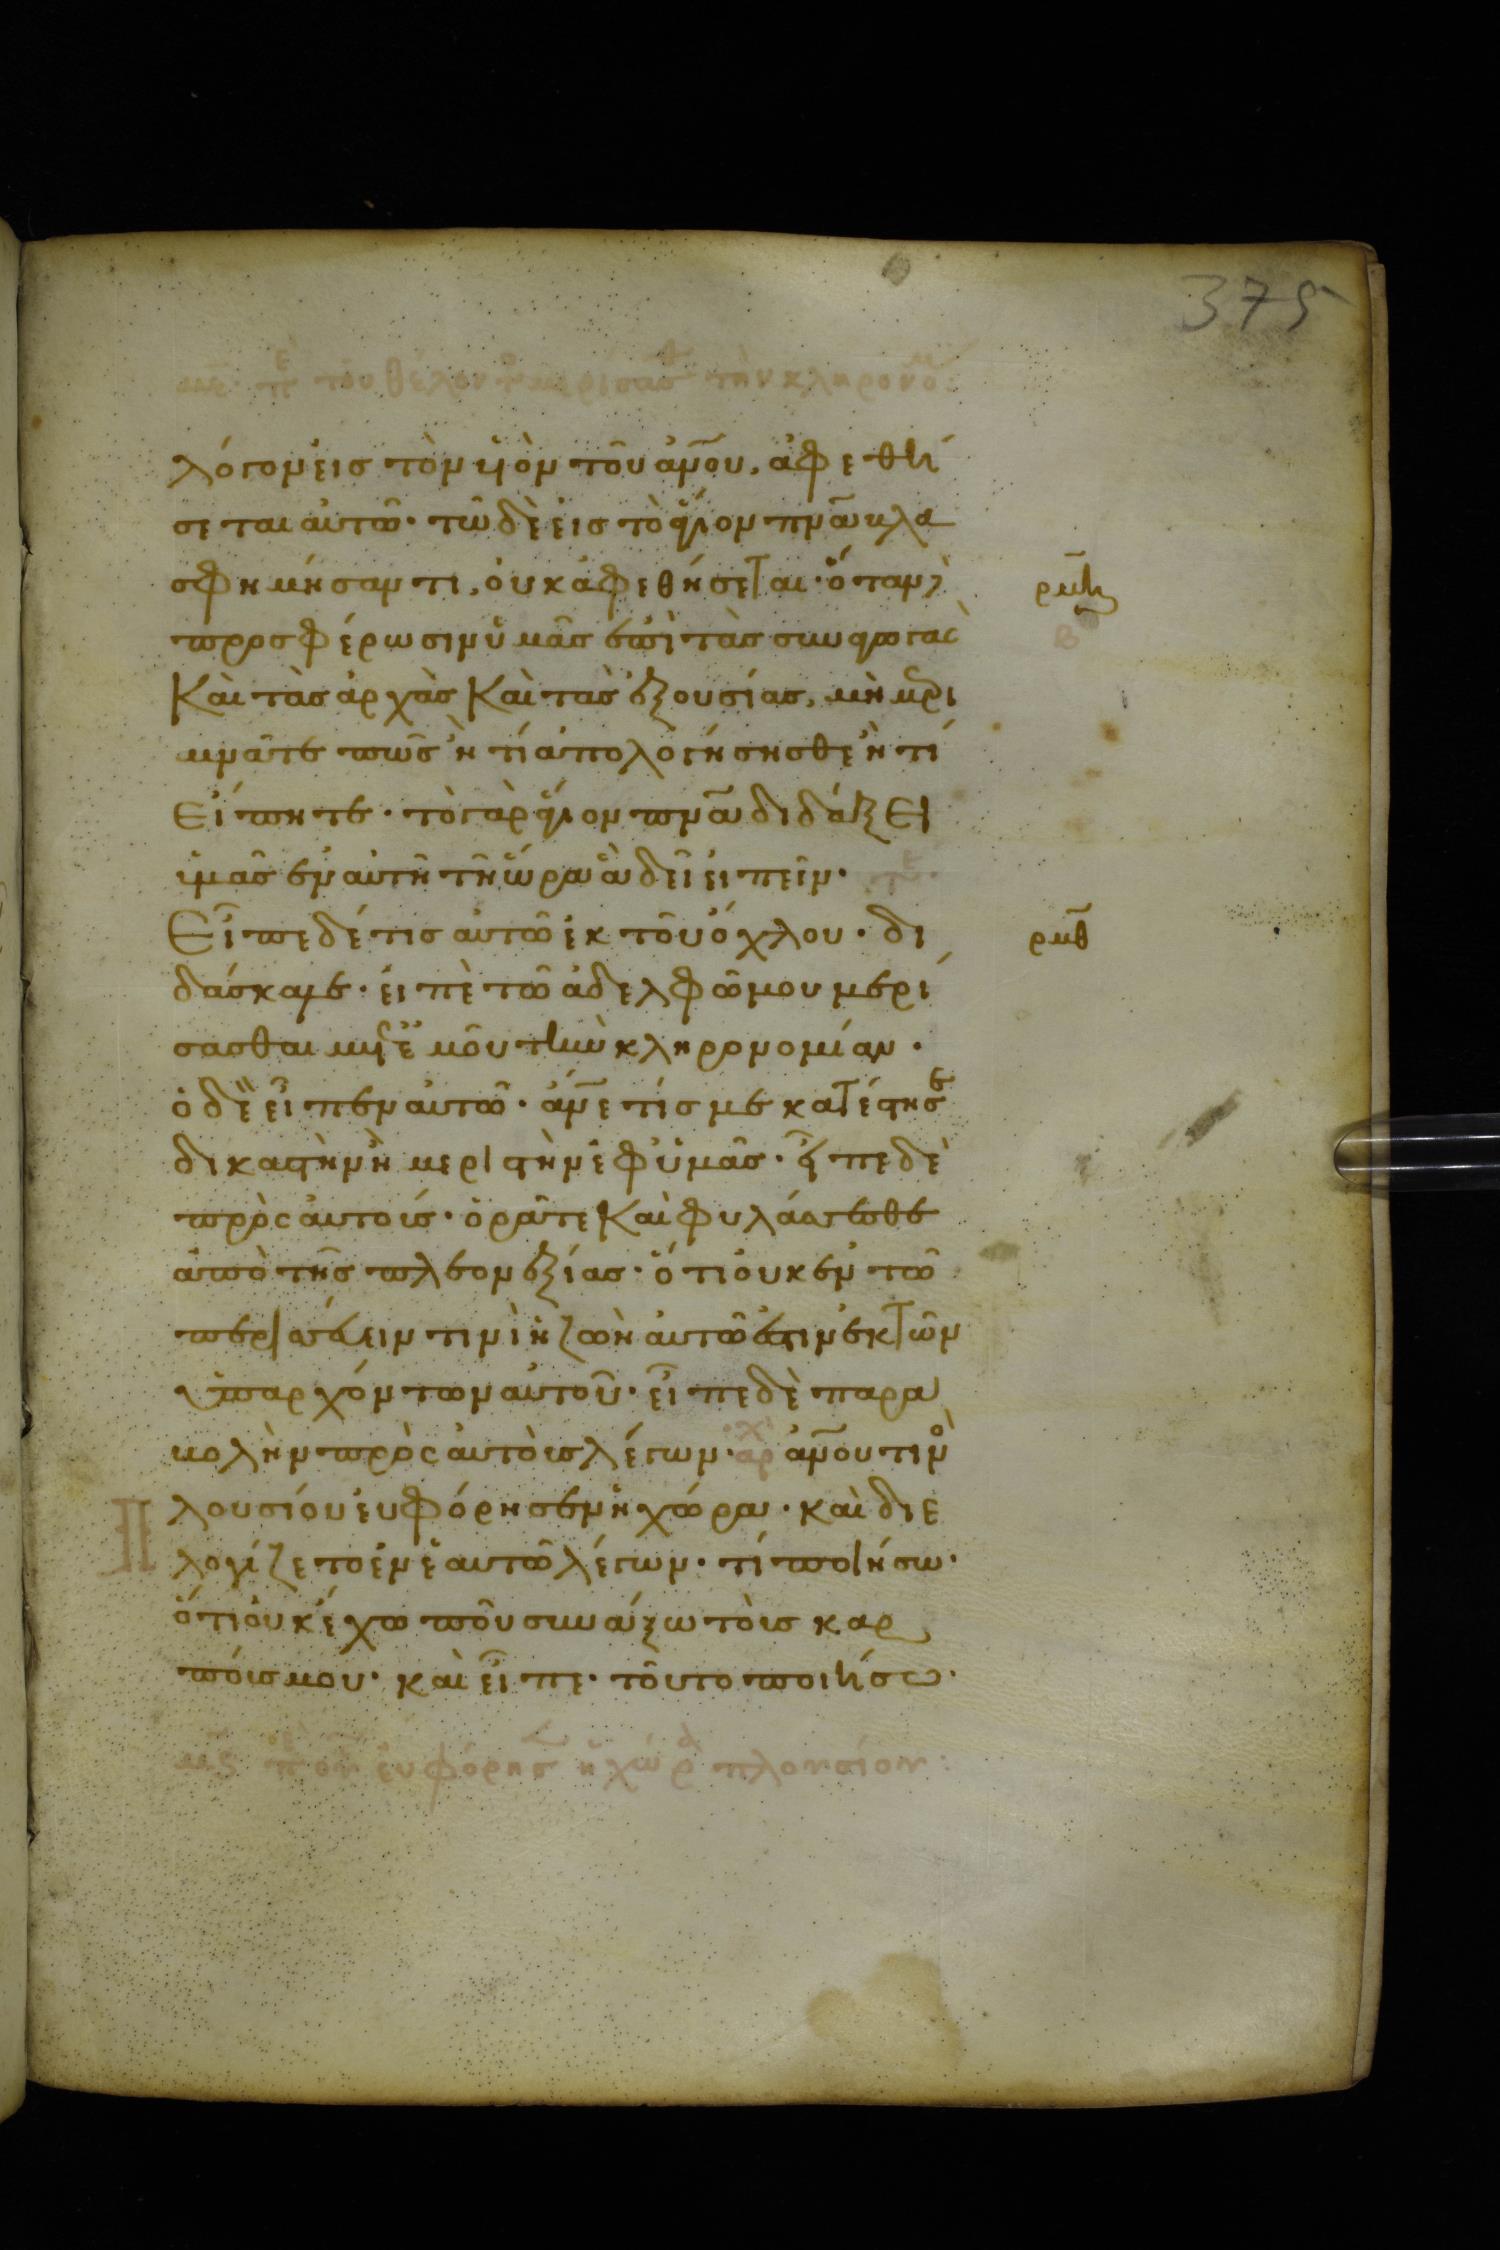 375
με· πε τοῦ θέλοντ μερίσασθ τὴν κληρονομ:
λόγον εἰς τὸν υἱὸν τοῦ ἀν̅ου, ἀφεθή
σεται αὐτῶ· τῶ δὲ εἰς τὸ ἅγιον πν̅α βλα
σφημήσαντι, οὐκ ἀφεθήσεται· ὅταν δὲ
ρμη
προσφέρωσιν ὑμᾶς ἐπὶ τὰς συναγωγὰς
β
καὶ τὰς ἀρχὰς καὶ τὰς ἐξουσίας, μὴ μερι
μνᾶτε πῶς ἢ τί ἀπολογήσησθε ἢ τί
εἴπητε· τὸ γὰρ ἅγιον πν̅α διδάξει
ὑμᾶς ἐν αὐτῆ τῆ ὥρα ἃ δεῖ εἰπεῖν·
Εἶπε δέ τις αὐτῶ ἐκ τοῦ ὄχλου· δι
ρμθ
δάσκαλε· εἰπὲ τῶ ἀδελφῶ μου μερί
σασθαι μετ ἐμοῦ τὴν κληρονομίαν·
ὁ δὲ εἶπεν αὐτῶ· ἀν̅ε τίς με κατέστησε
δικαστὴν ἢ μεριστὴν ἐφ ὑμᾶς· εἶπε δὲ
πρὸς αὐτοίς· ὁρᾶτε καὶ φυλάσσεσθε
ἀπὸ τῆς πλεονεξίας· ὅτι οὐκ ἐν τῶ
περισσεύειν τινὶ ἡ ζωὴ αὐτῶ ἐστιν ἐκ τῶν
ὑπαρχόντων αὐτοῦ· εἶπε δὲ παρα
βολὴν πρὸς αὐτοὺς λέγων· αρχ ἀν̅ου τινὸ
Π λουσίου εὐφόρησεν ἡ χώρα· καὶ διε
λογίζετο ἐν ἑαυτῶ λέγων· τί ποιήσω·
ὅτι οὐκ ἔχω ποῦ συνάξω τοὺς καρ
πούς μου· καὶ εἶπε· τοῦτο ποιήσω·
μς πε οὗ εὐφόρησ ἡ χώρα πλουσίου: